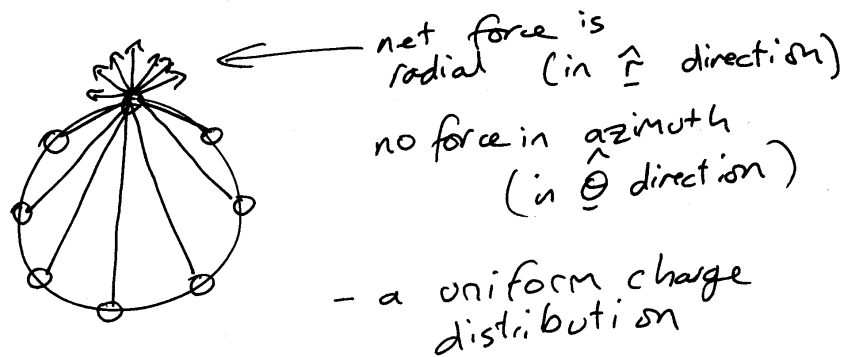 net force is
radial (in r̂ direction)
no force in azimuth
(in θ̂ direction)
- a uniform charge
distribution